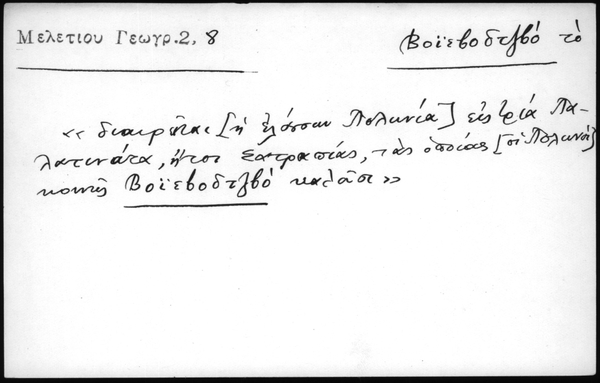 Μελετίου Γεωγρ.2, 8
Βοϊεβοδτζβό τὸ
«διαιρεῖται [ἡ ἐλάσσων Πολωνία] εἰς τρία Πα-
λατινάτα, ἤτοι Σατραπίας, τὰς ὁποίας [οἱ Πολωνοὶ]
κοινῶς Βοϊεβοδτζβό καλοῦσι»